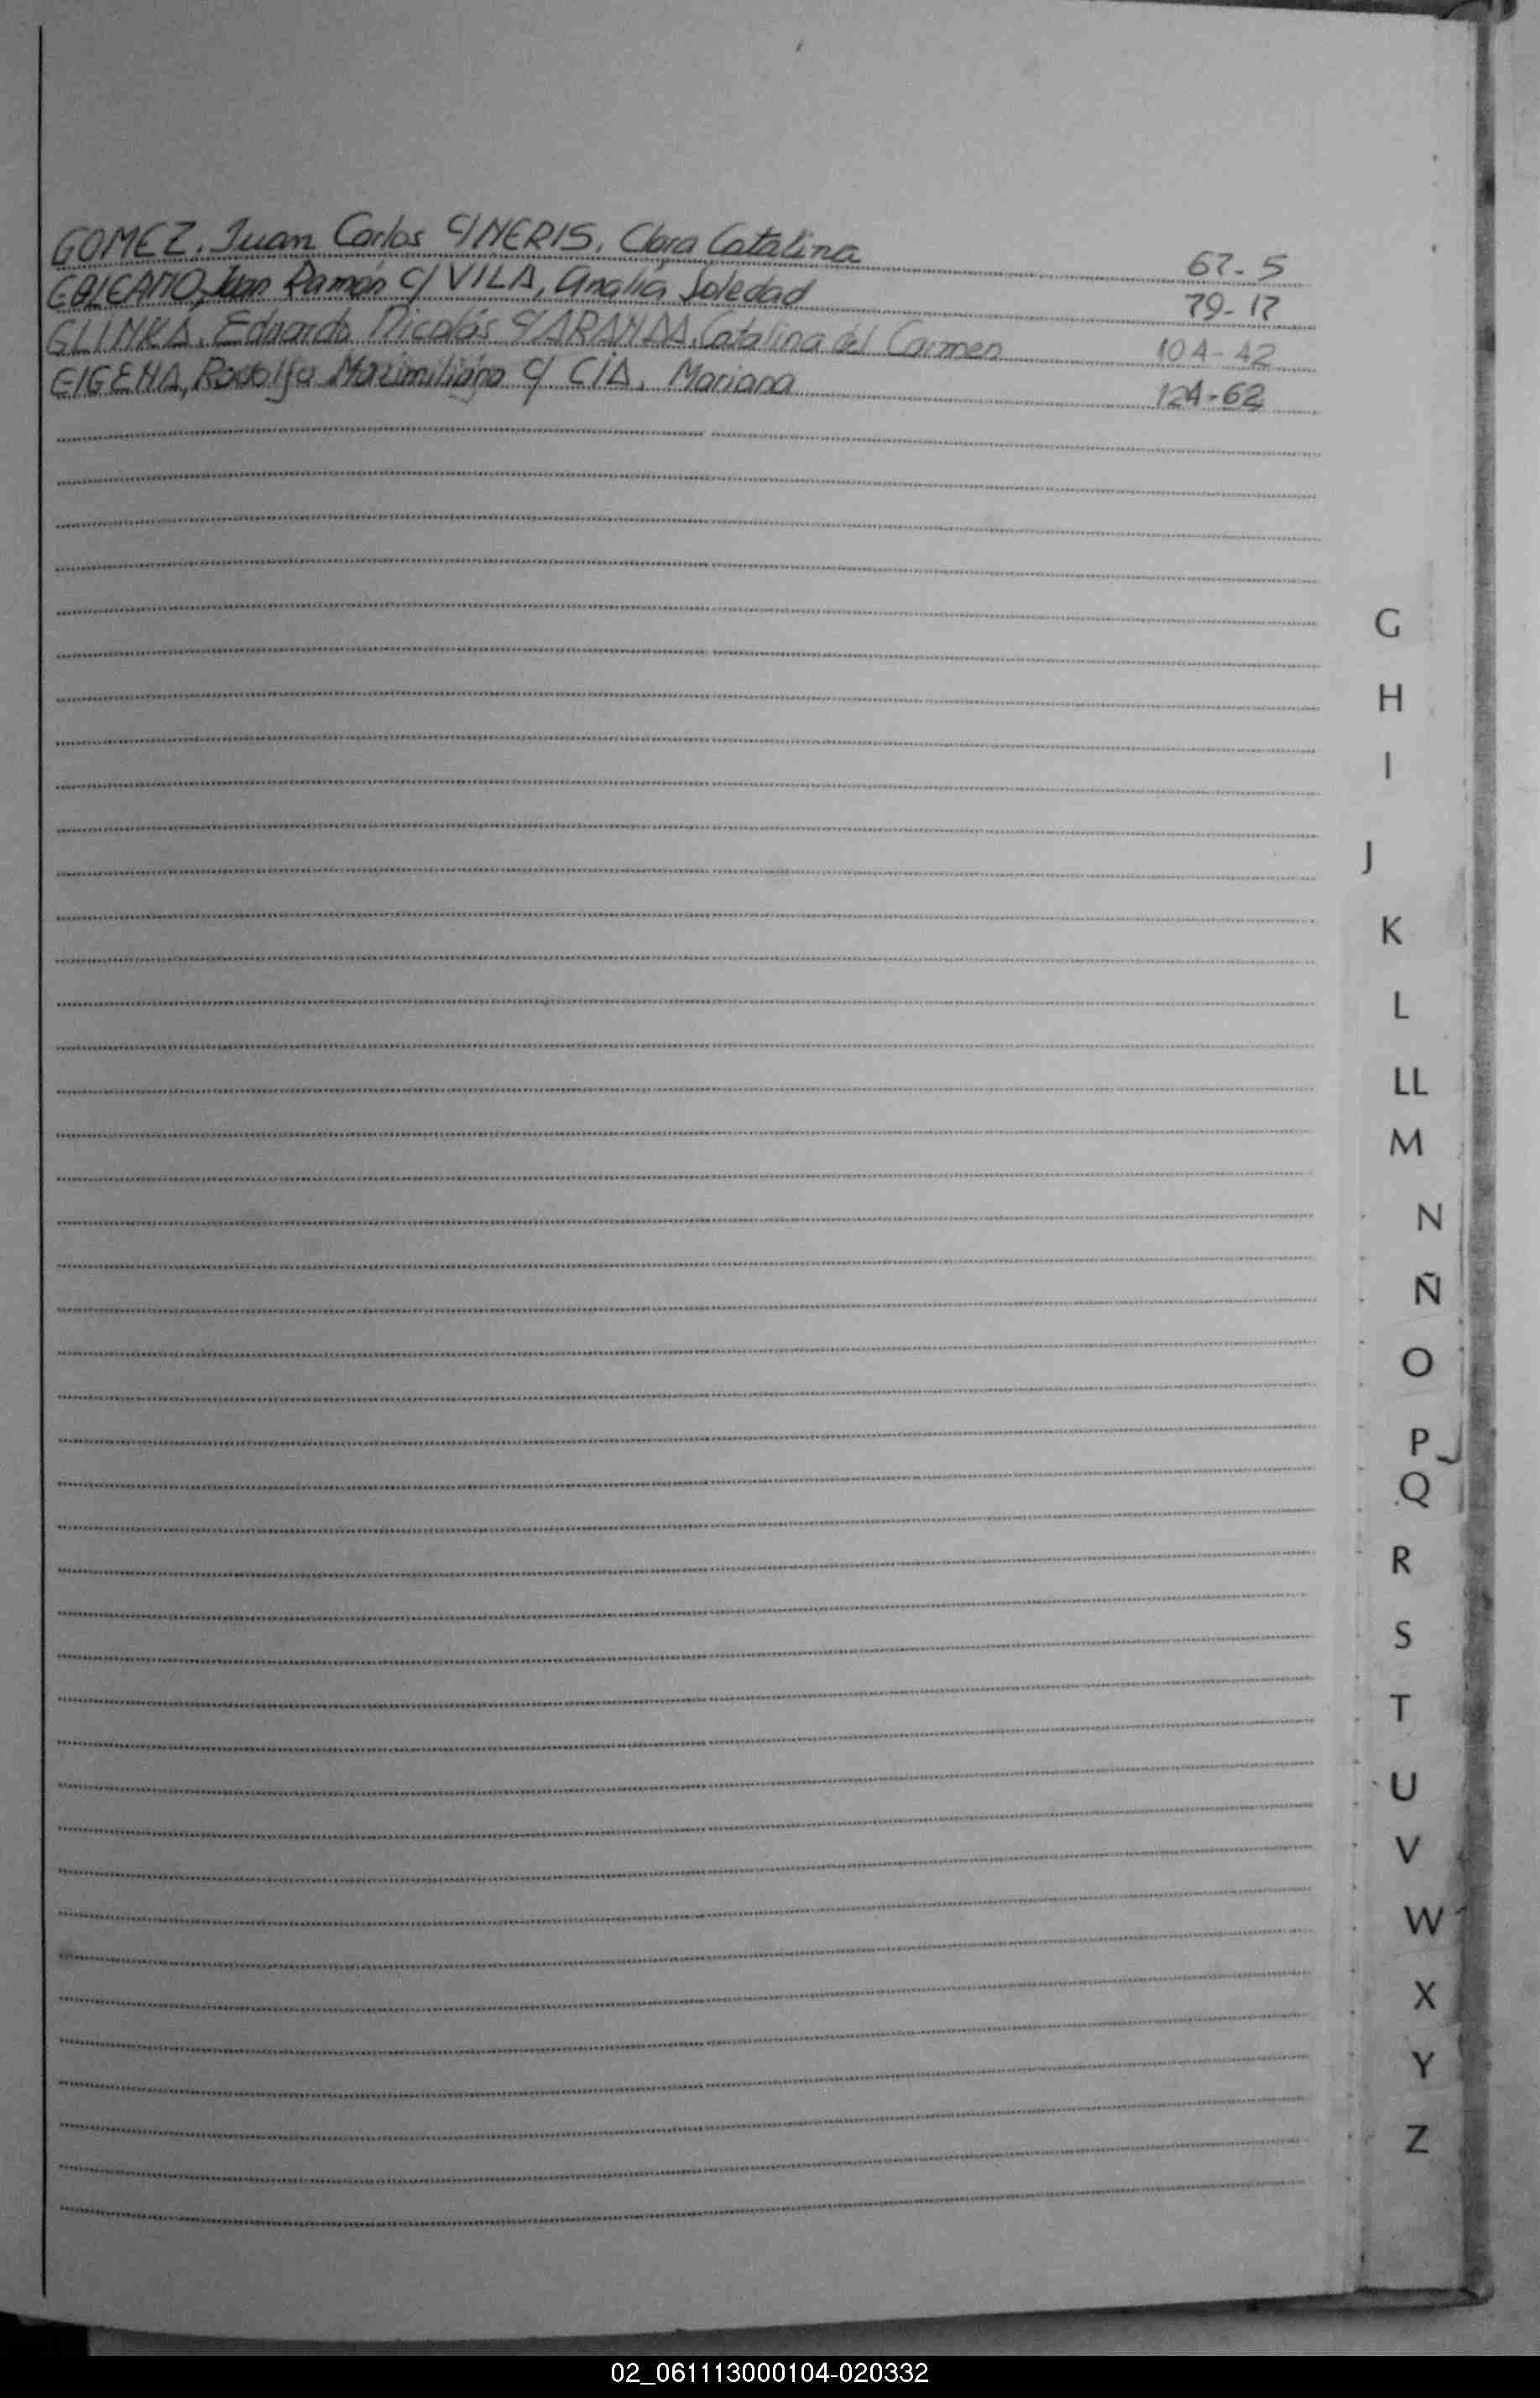 GOMEZ, Juan Carlos c/ NERIS, Clara Catalina 67-5
GALEANO, Juan Ramón c/ VILA, Analia Soledad 79-17
GLINKA, Eduardo Nicolás c/ ARANDA, Catalina del Carmen 104-42
GIGENA, Rodolfo Maximiliano c/ CIA, Mariana 124-62
G
H
I
J
K
L
LL
M
N
Ñ
O
P
Q
R
S
T
U
V
W
X
Y
Z
02_061113000104-020332